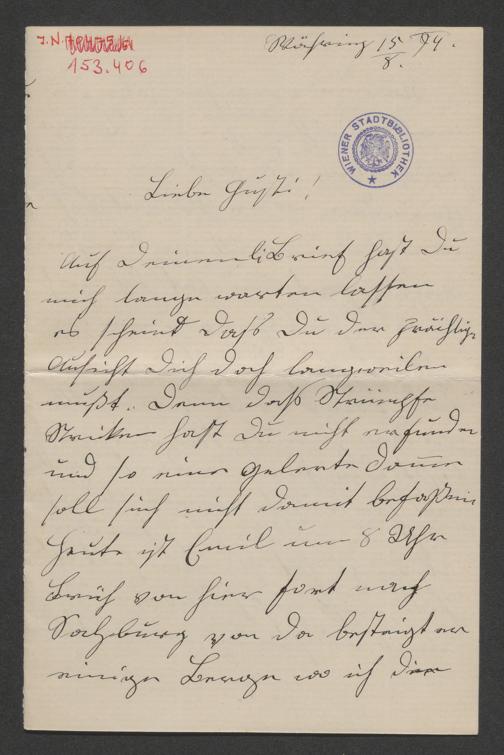 J.N.
153.406
Währing 15/8. 94.
WIENER STADTBIBLIOTHEK
Liebe Gusti!
Auf Deinen lb Brief hast Du
mich lange warten lassen
es scheint daß Du der prächtigen
Aussicht Dich doch langweilen
mußt. Denn daß Strümpfe
Stricken hast Du nicht erfunden
und so eine gelerte Dame
soll sich nicht damit befaßen
Heute ist Emil um 8 Uhr
Früh von hier fort nach
Salzburg von da besteigt er
einige Berge wo ich die